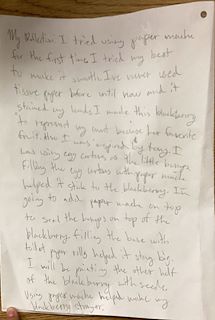 My Reflection I tried using paper mache
for the first time. I tried my best
to make it smooth. Ive never used
tissue paper before until now and it
stained my hands. I made this blackberry
to represent my aunt because her favorite
fruit. How I was inspired by tony. I
was using egg cartons as the little bumps
filling the egg cartons with paper mache
helped it stick to the blackberry. I'm
going to add paper mache on top
to seal the bumps on top of the
blackberry. filling the base with
toilet paper rolls helped it stay big.
I will be painting the other half
of the blackberry with seeds.
using paper mache helped make my
blackberry stronger.